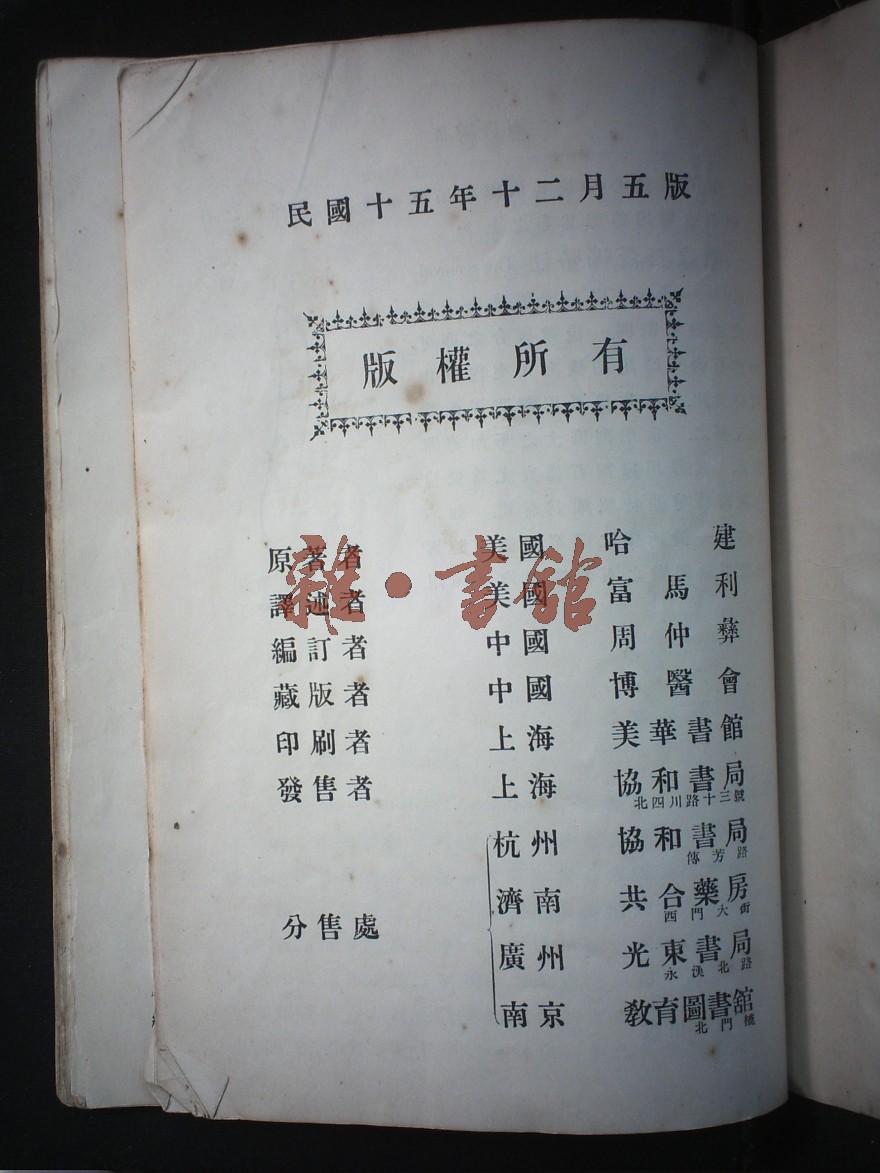 民國十五年十二月五版
版權所有
原著者 美國 哈建
譯述者 美國 富馬利
編訂者 中國 周仲彝
藏版者 中國 博醫會
印刷者 上海 美華書館
發售者 上海 協和書局
北四川路十三號
分售處
杭州 協和書局
傳芳路
濟南 共合藥房
西門大街
廣州 光東書局
永漢北路
南京 教育圖書舘
北門橋
雜·書舘